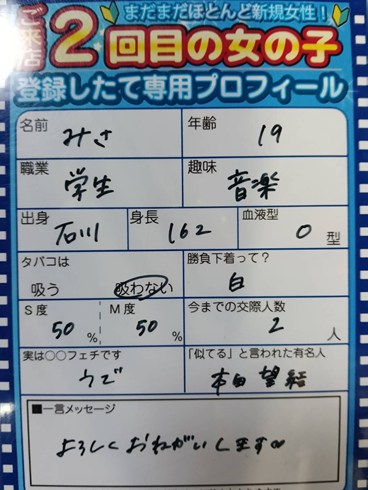 まだまだほとんど新規女性！
ご来店2回目の女の子
登録したて専用プロフィール
名前 みさ 年齢 19
職業 学生 趣味 音楽
出身 石川 身長 162 血液型 O型
タバコは 吸う 吸わない 勝負下着って？ 白
S度 50% M度 50% 今までの交際人数 2人
実は○○フェチです うで 「似てる」と言われた有名人 本田望結
■一言メッセージ
よろしくおねがいします∞